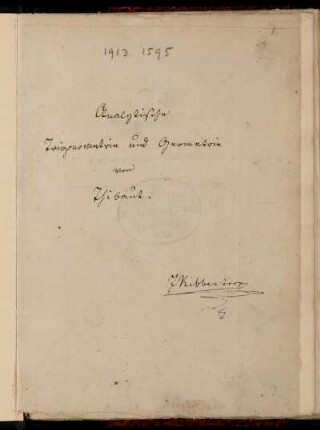 1913 1595
1.
Analytische
Trigonometrie und Geometrie
von
Thibaut.
Ribbentrop